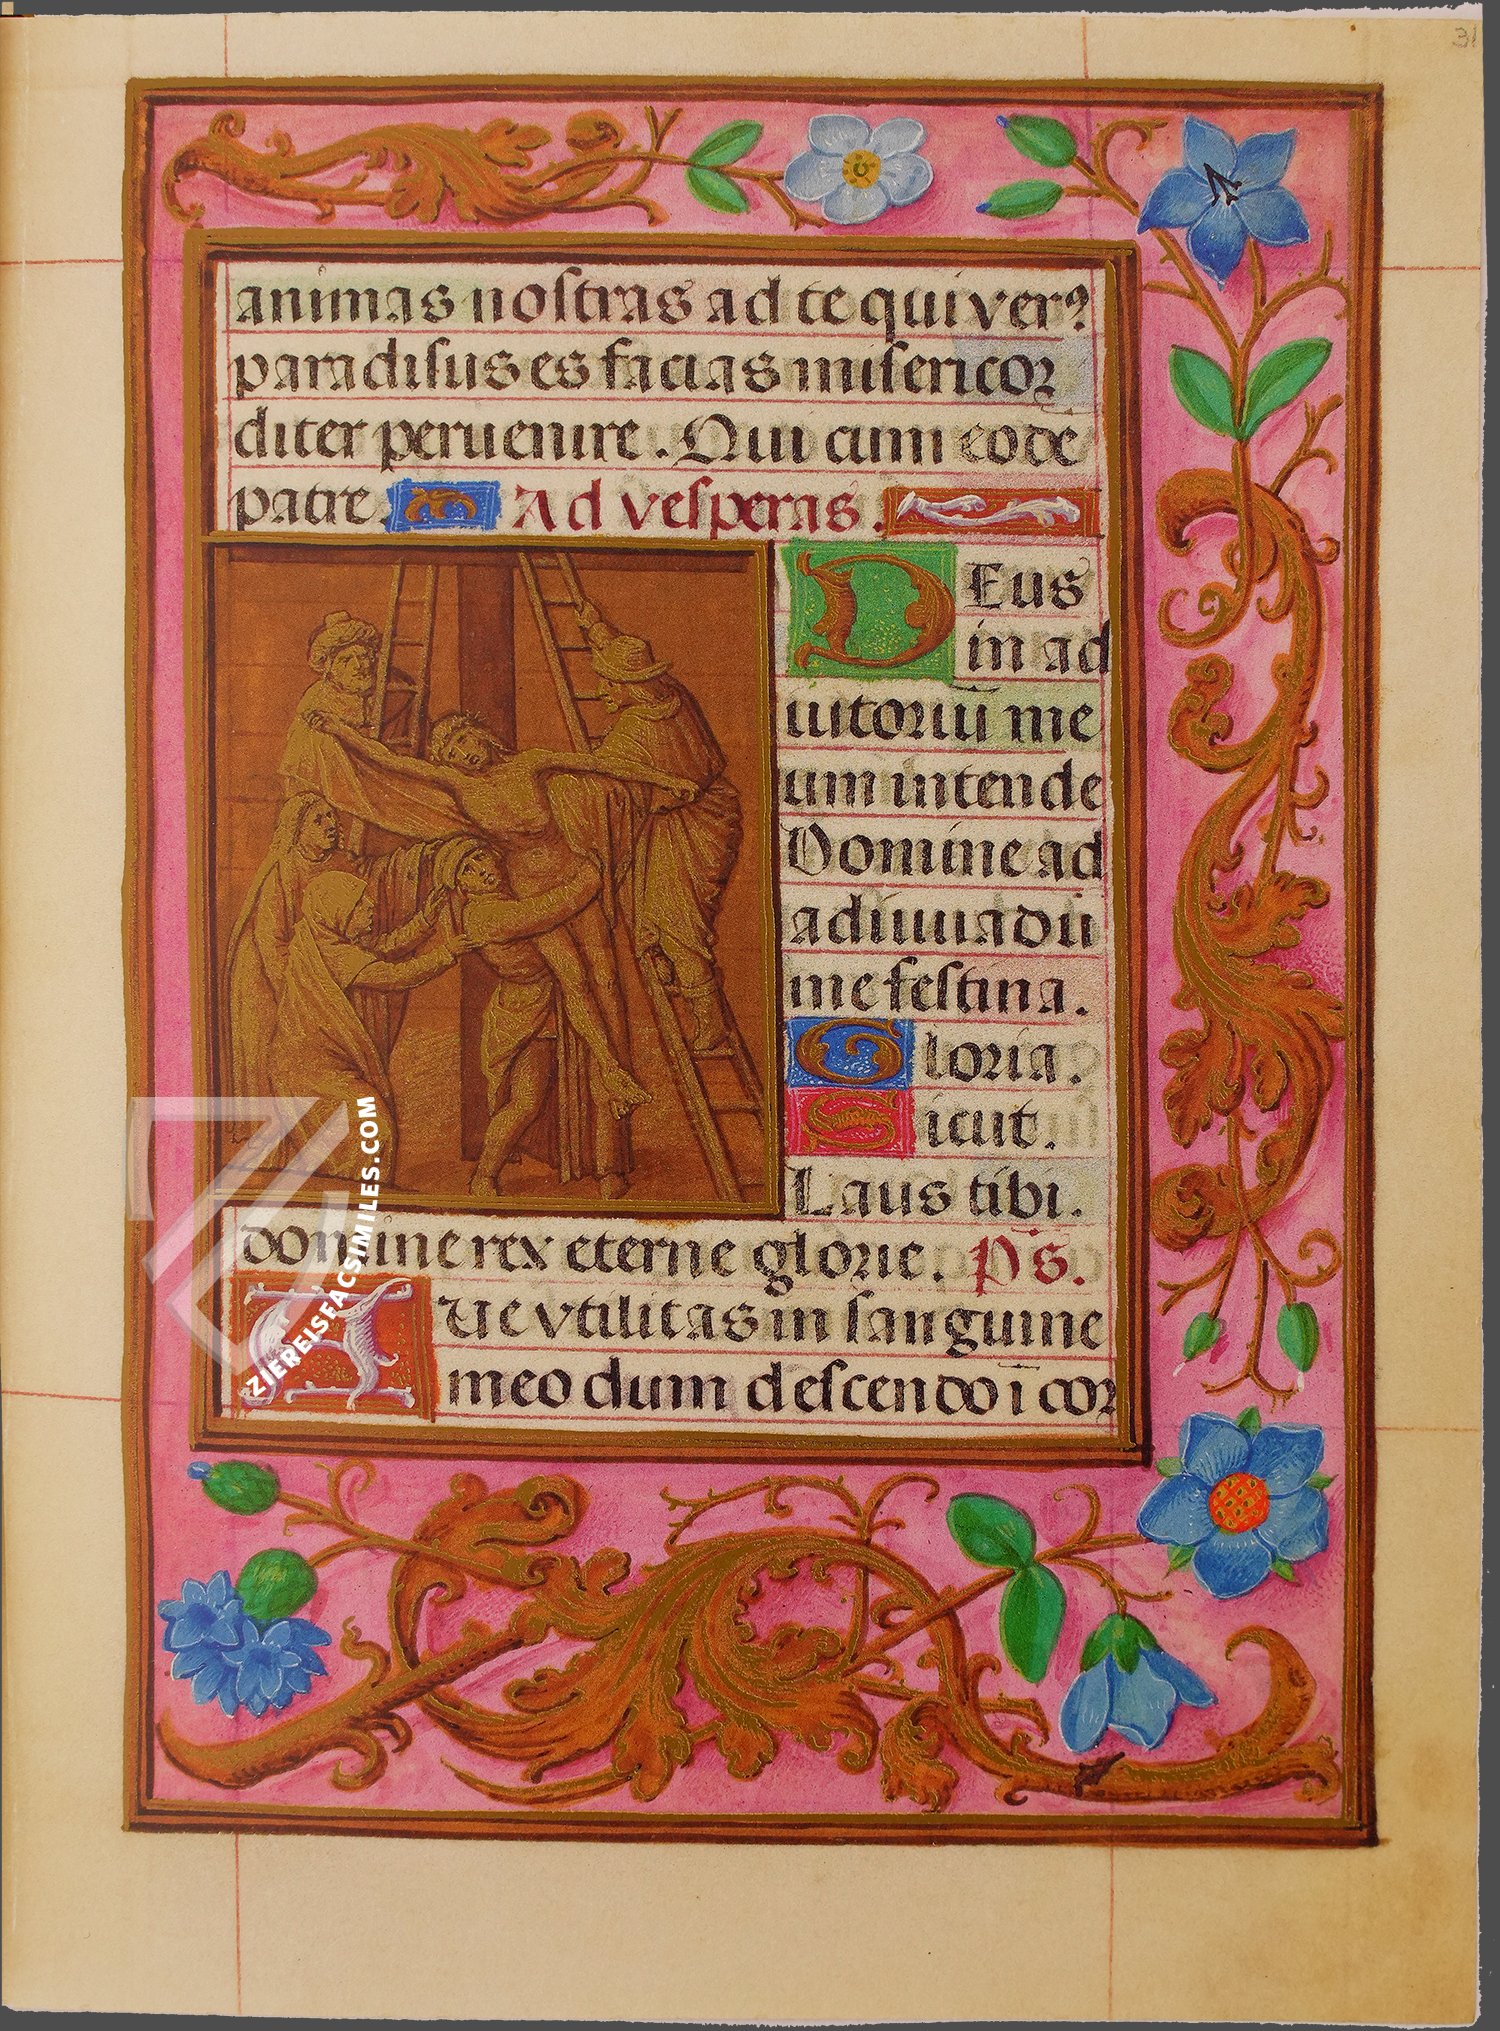 31
animas nostras ad te qui verꝰ
paradisus es facias misericor
diter peruenire. Qui cum eodē
patre. Ad vesperas.
DEus
in ad
iutoriū me
um intende
Domine ad
adiuuādū
me festina.
Gloria.
Sicut.
Laus tibi.
domine rex eterne glorie. p̄s.
Que vtilitas in sanguine
meo dum descendo ī cor
ZIEREISFACSIMILES.COM